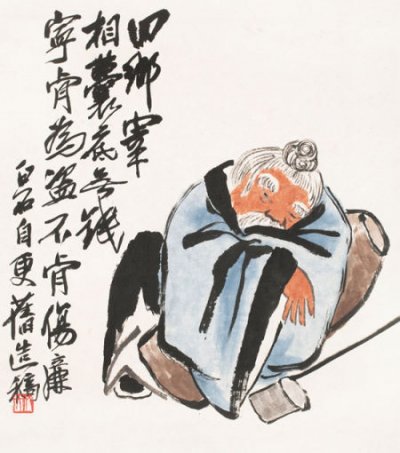 回鄉宰
相囊底无錢
寧肯為盜不肯傷廉
白石自更舊造稿